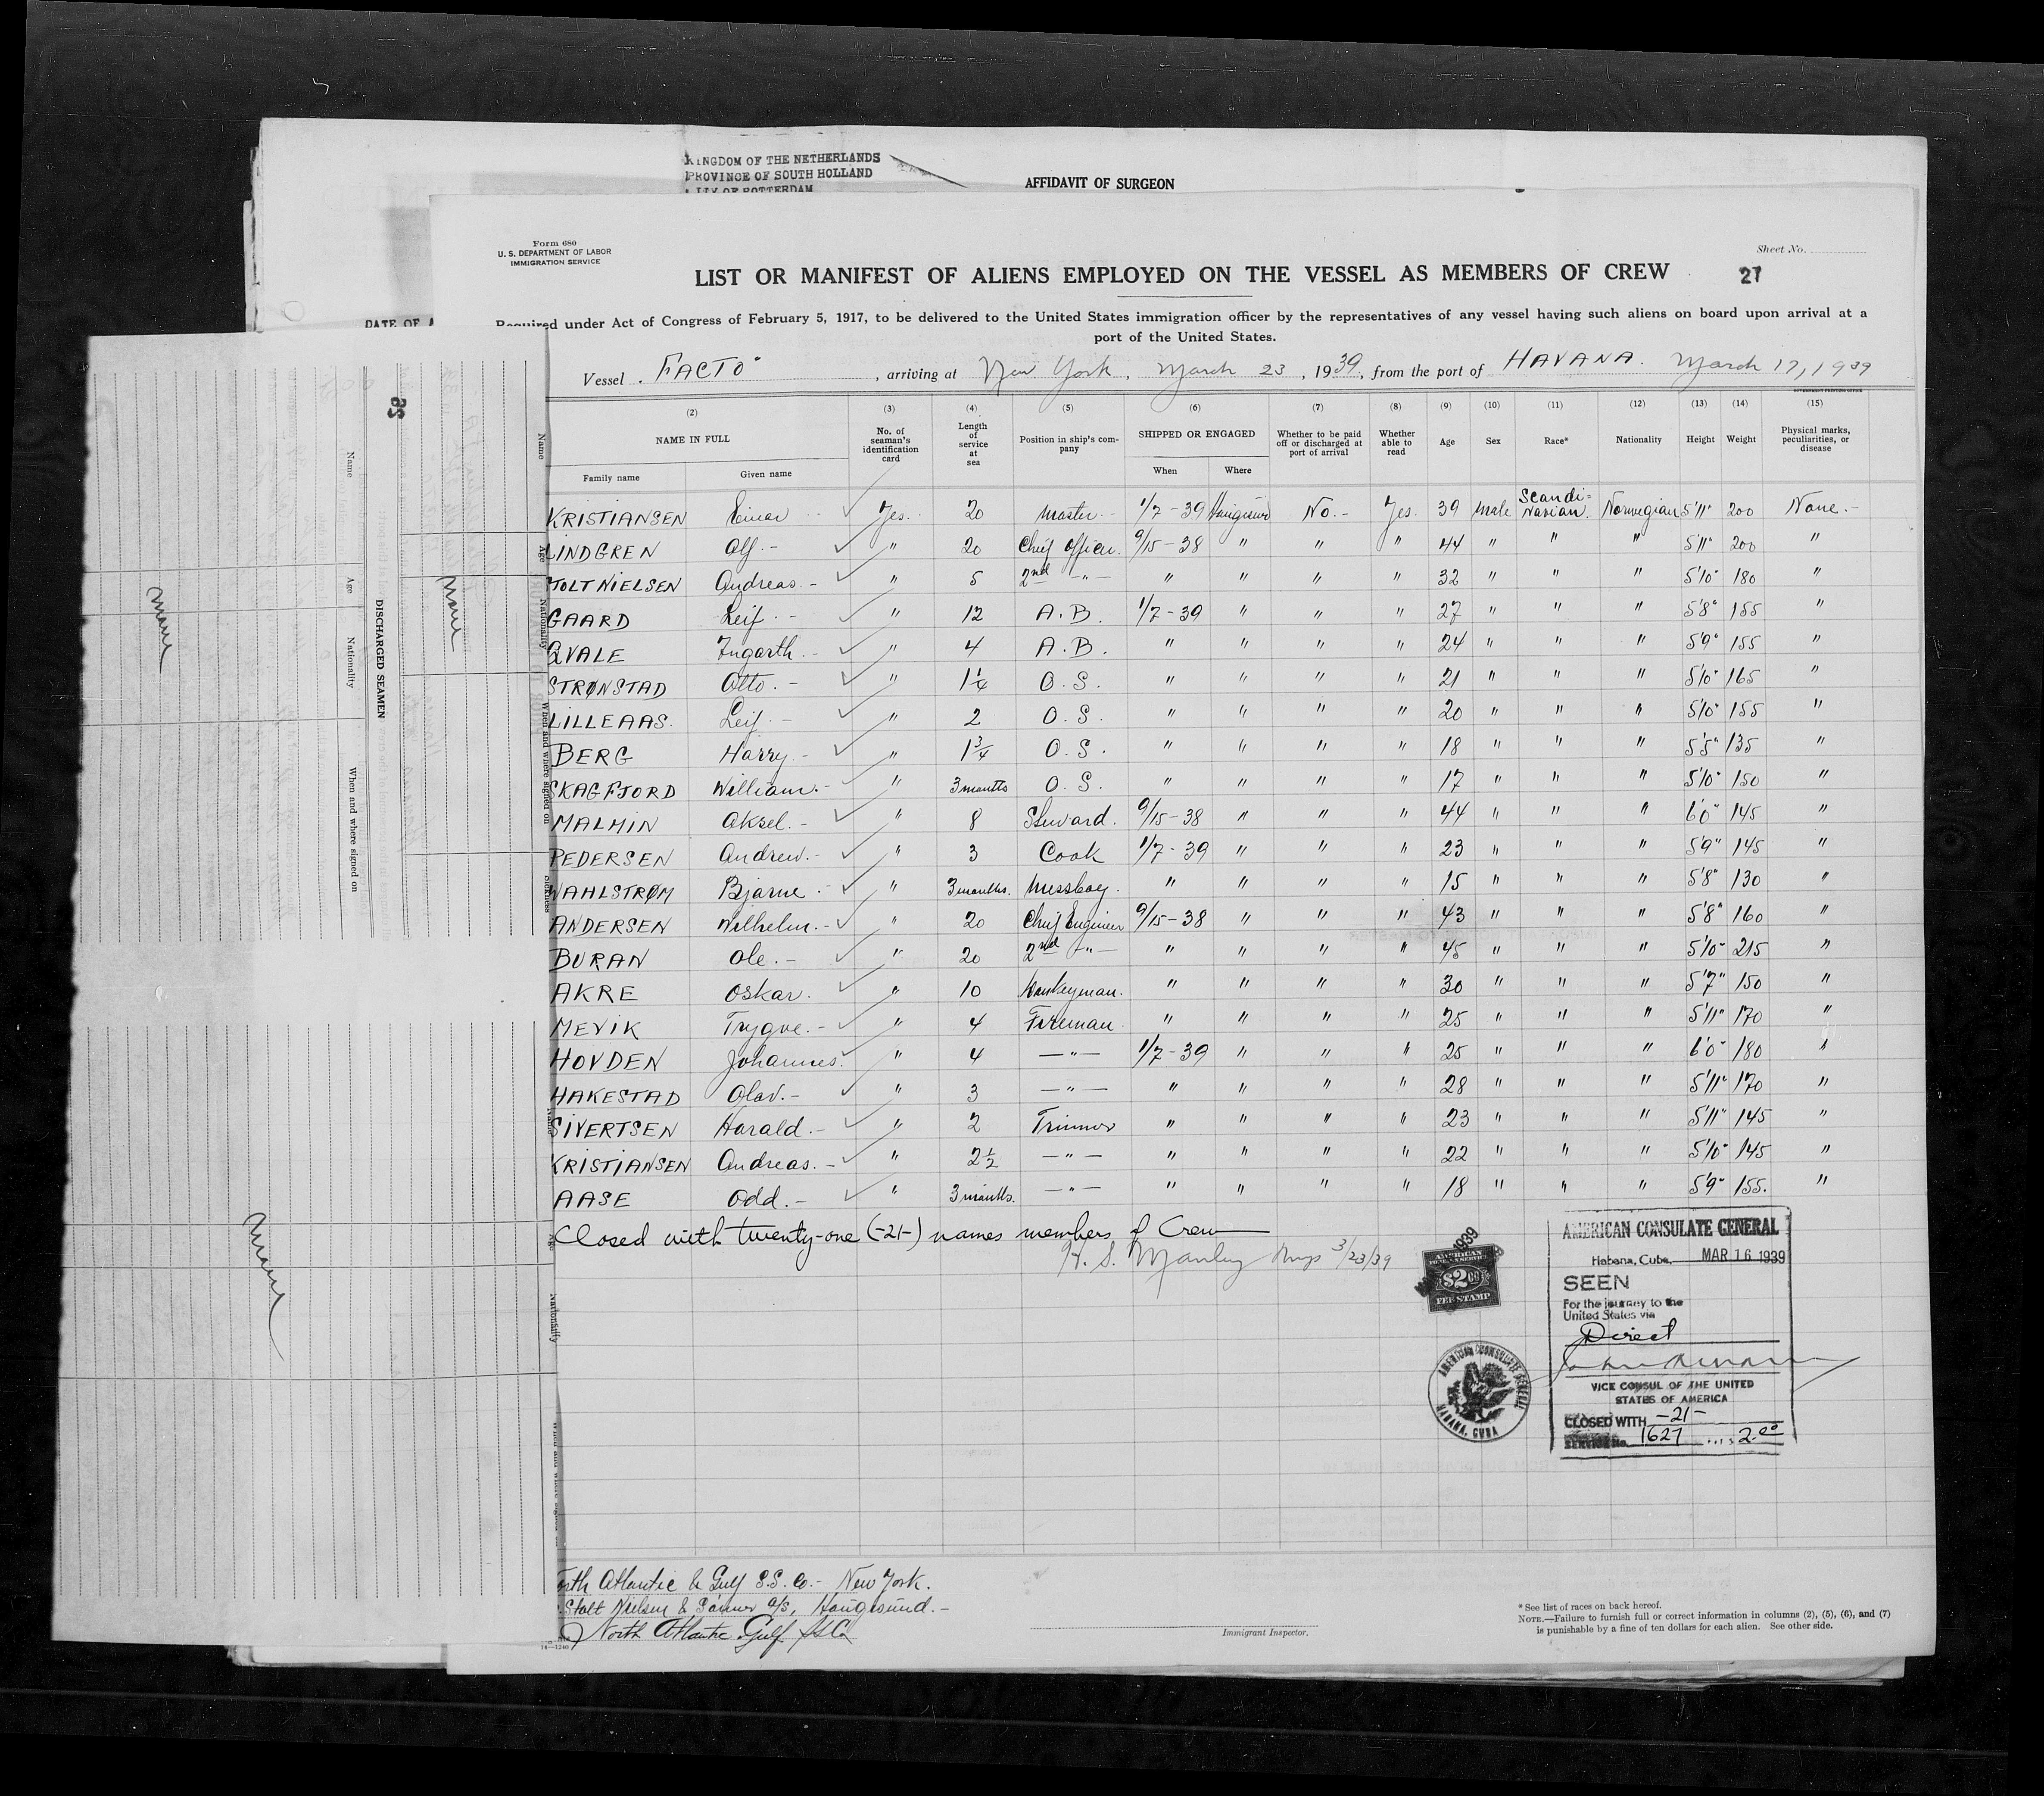 KINGDOM OF THE NETHERLANDS
PROVINCE OF SOUTH HOLLAND
CITY OF ROTTERDAM
AFFIDAVIT OF SURGEON
Form 680
U. S. DEPARTMENT OF LABOR
IMMIGRATION SERVICE
Sheet No.
LIST OR MANIFEST OF ALIENS EMPLOYED ON THE VESSEL AS MEMBERS OF CREW
27
DATE OF A
Required under Act of Congress of February 5, 1917, to be delivered to the United States immigration officer by the representatives of any vessel having such aliens on board upon arrival at a
port of the United States.
Vessel FACTO, arriving at New York, March 23, 1939, from the port of HAVANA. March 17, 1939
(2) (3) (4) (5) (6) (7) (8) (9) (10) (11) (12) (13) (14) (15)
NAME IN FULL No. of seaman's identification card Length of service at sea Position in ship's company SHIPPED OR ENGAGED Whether to be paid off or discharged at port of arrival Whether able to read Age Sex Race* Nationality Height Weight Physical marks, peculiarities, or disease
Family name Given name When Where
KRISTIANSEN Einar - Yes. 20 Master - 1/7-39 Haugesund No.- Yes. 39 Male Scandi=navian. Norwegian 5'11" 200 None.-
LINDGREN Alf. - " 20 Chief Officer. 9/15-38 " " " 44 " " " 5'11" 200 "
STOLT NIELSEN Andreas. - " 5 2nd -"- " " " " 32 " " " 5'10" 180 "
GAARD Leif. - " 12 A.B. 1/7-39 " " " 27 " " " 5'8" 155 "
QVALE Ingarth. - " 4 A.B. " " " " 24 " " " 5'9" 155 "
STRØNSTAD Otto. - " 1 1/4 O.S. " " " " 21 " " " 5'10" 165 "
LILLEAAS. Leif. - " 2 O.S. " " " " 20 " " " 5'10" 155 "
BERG Harry. - " 1 3/4 O.S. " " " " 18 " " " 5'5" 135 "
SKAGFJORD William. - " 3 months O.S. " " " " 17 " " " 5'10" 150 "
MALMIN Aksel. - " 8 Steward. 9/15-38 " " " 44 " " " 6'0" 145 "
PEDERSEN Andrew. - " 3 Cook 1/7-39 " " " 23 " " " 5'9" 145 "
WAHLSTRØM Bjarne. - " 3 months. Messboy. " " " " 15 " " " 5'8" 130 "
ANDERSEN Wilhelm. - " 20 Chief Engineer 9/15-38 " " " 43 " " " 5'8" 160 "
BURAN Ole. - " 20 2nd -"- " " " " 45 " " " 5'10" 215 "
AKRE Oskar. " 10 Donkeyman. " " " " 30 " " " 5'7" 150 "
MEVIK Trygve. - " 4 Fireman. " " " " 25 " " " 5'11" 170 "
HOVDEN Johannes. " 4 -"- 1/7-39 " " " 25 " " " 6'0" 180 "
HAKESTAD Olav. - " 3 -"- " " " " 28 " " " 5'11" 170 "
SIVERTSEN Harald. - " 2 Trimmer " " " " 23 " " " 5'11" 145 "
KRISTIANSEN Andreas. - " 2 1/2 -"- " " " " 22 " " " 5'10" 145 "
AASE Odd. - " 3 months. -"- " " " " 18 " " " 5'9" 155. "
Closed with twenty-one (-21-) names members of Crew
H. S. Manley 3/23/39
1939
AMERICAN
FOREIGN SERVICE
$2.00
FEE STAMP
AMERICAN CONSULATE GENERAL
HABANA, CUBA
AMERICAN CONSULATE GENERAL
Habana, Cuba, MAR 16 1939
SEEN
For the journey to the
United States via
Direct
VICE CONSUL OF THE UNITED
STATES OF AMERICA
CLOSED WITH -21-
SERVICE No. 1627 2.00
North Atlantic & Gulf S.S. Co.- New York.
Stolt Nielsen & Sønner A/S, Haugesund.-
North Atlantic Gulf SS Co
14-1240
Immigrant Inspector.
* See list of races on back hereof.
NOTE.—Failure to furnish full or correct information in columns (2), (5), (6), and (7)
is punishable by a fine of ten dollars for each alien. See other side.
DISCHARGED SEAMEN
Name
Age
Nationality
When and where signed on
Name
Age
Nationality
When and where signed on
Nationality
None
None
None